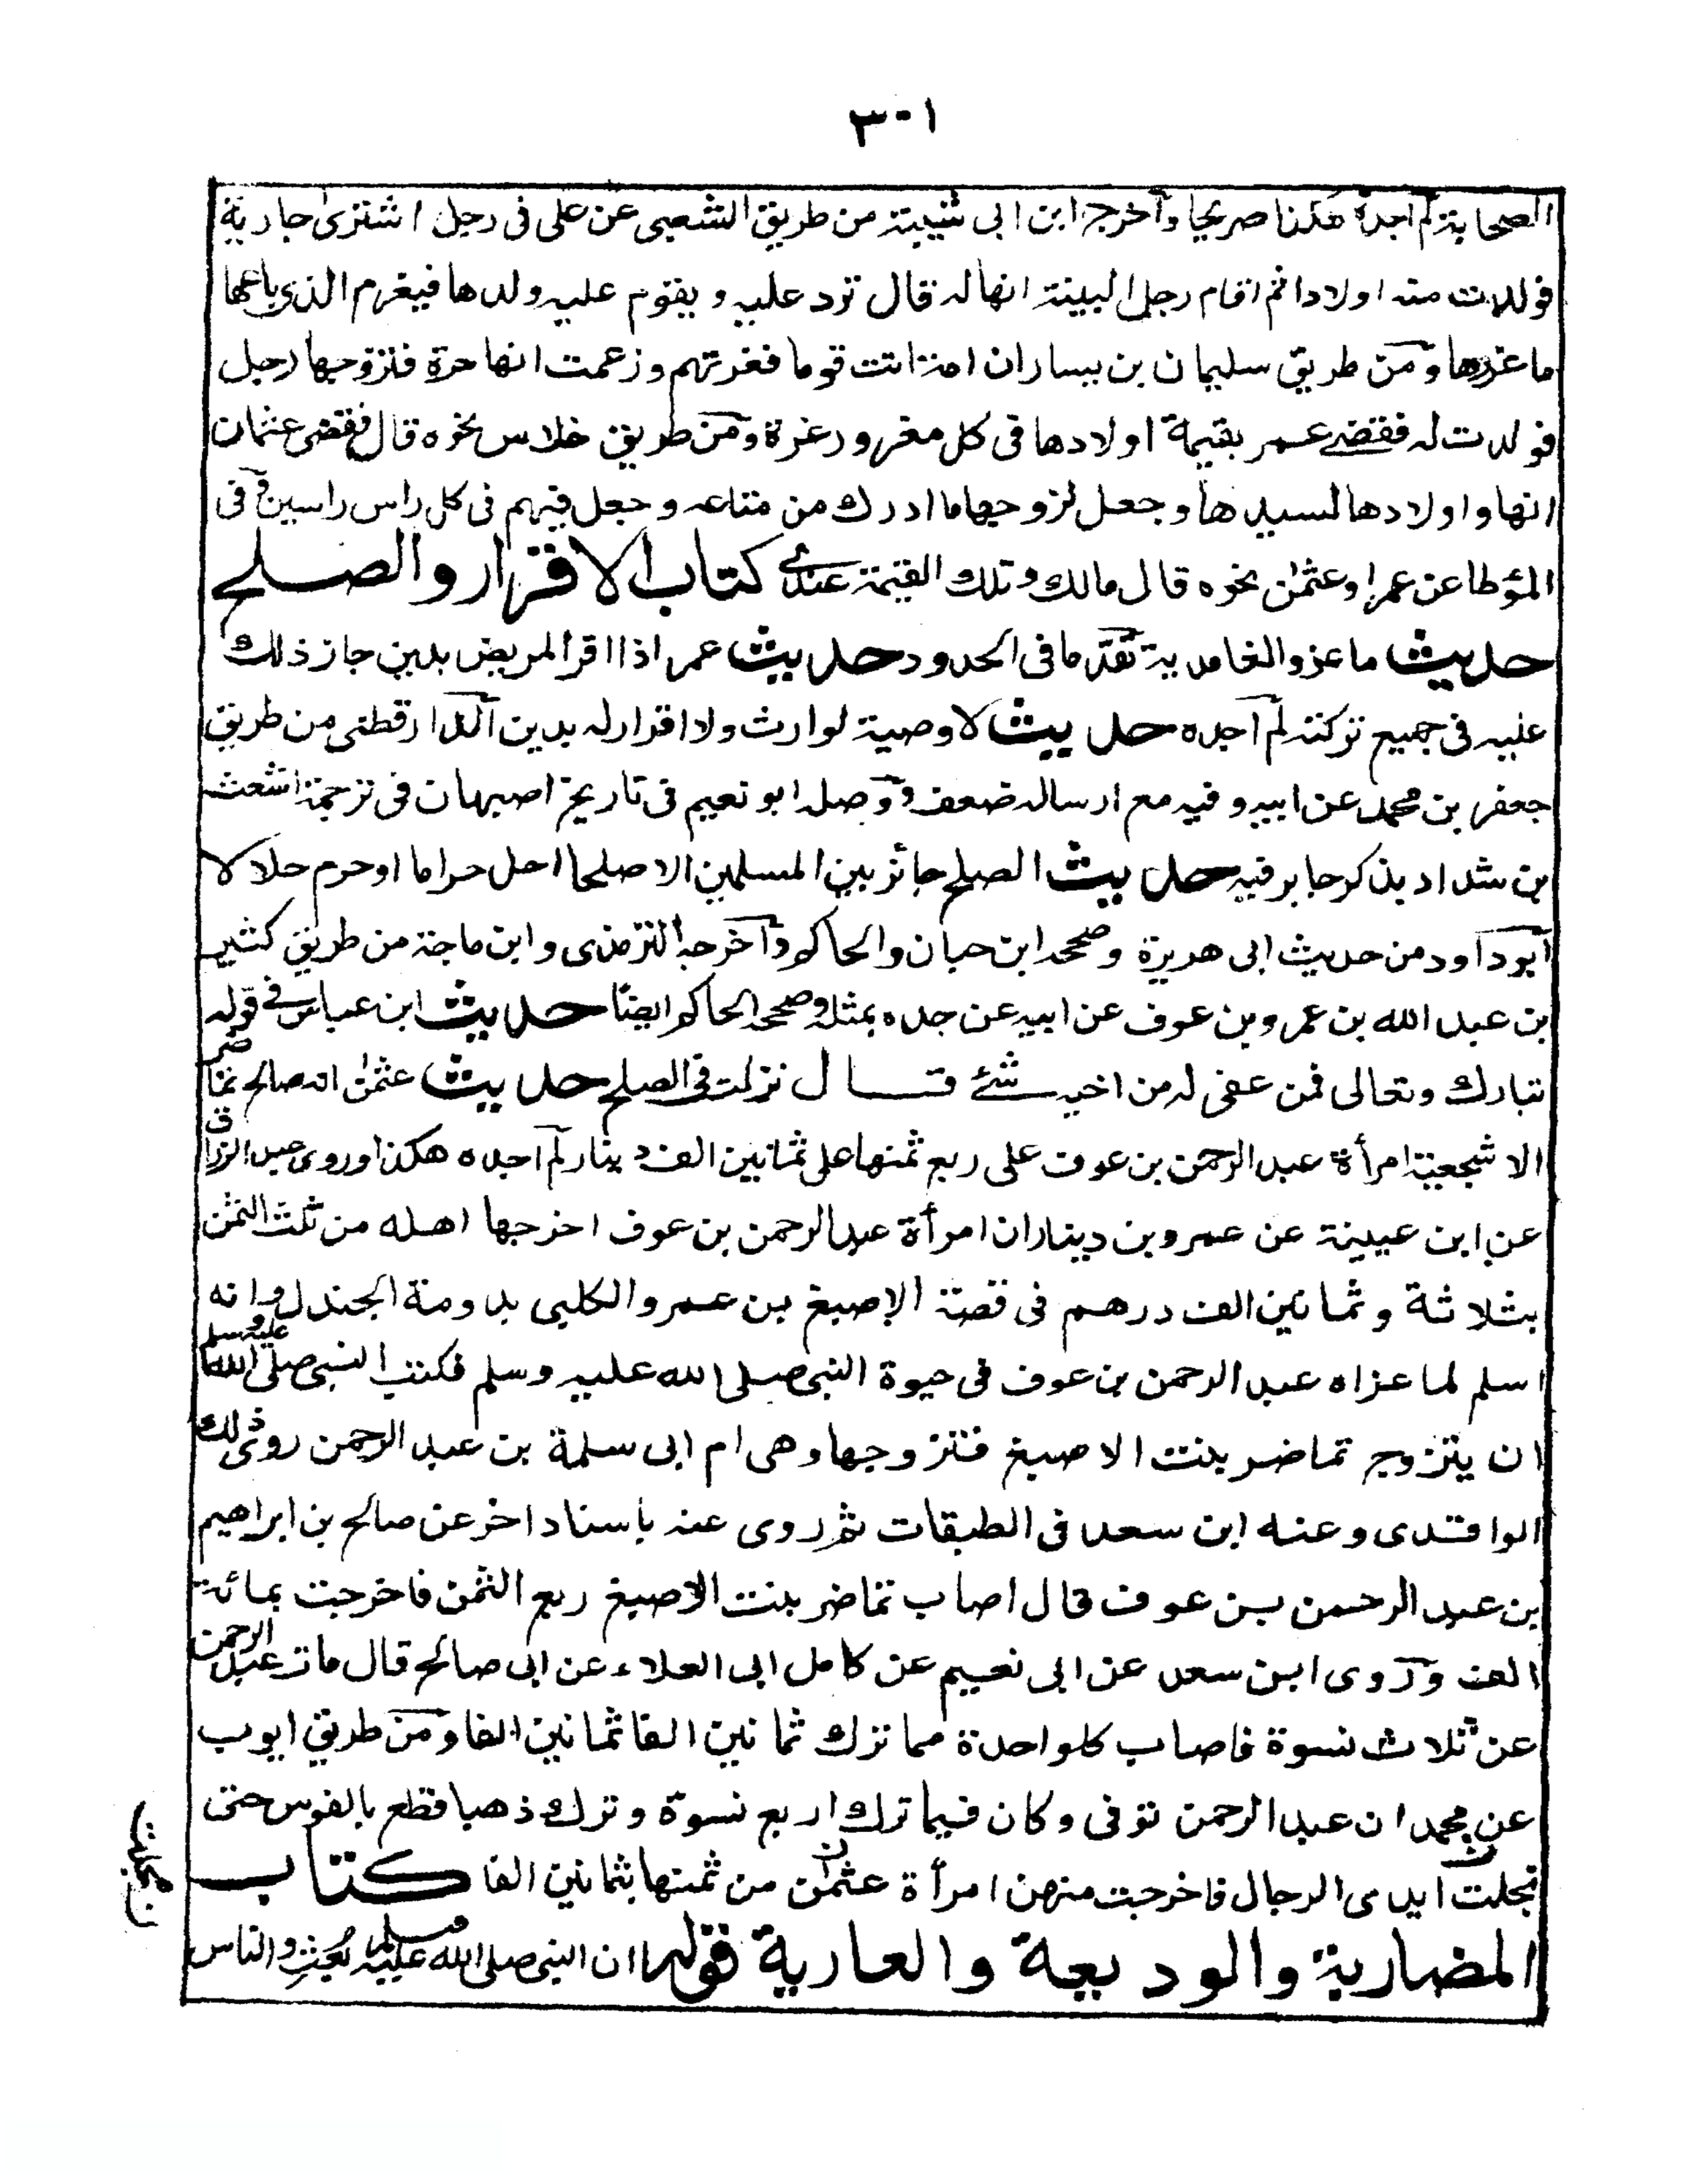 ٣٠١
الصحابة لم اجده هكذا صريحا واخرج ابن ابى شيبة من طريق الشعبى عن على فى رجل اشترى جارية
فولدت منه اولادا ثم اقام رجل البينة انها له قال ترد عليه ويقوم عليه ولدها فيغرم الذى باعها
ما غرها ومن طريق سليمان بن يسار ان امة اتت قوما فغرتهم وزعمت انها حرة فتزوجها رجل
فولدت له فقضى عمر بقيمة اولادها فى كل مغرور غرة ومن طريق خلاس نحوه قال فقضى عثمان
انها واولادها لسيدها وجعل لزوجها ما ادرك من متاعه وجعل فيهم فى كل راس راسين وفى
المؤطا عن عمر او عثمٰن نحوه قال مالك وتلك القيمة عندى كتاب الاقرار والصلح
حديث ماعز والغامدية تقدما فى الحدود حديث عمر اذا اقر المريض بدين جاز ذلك
عليه فى جميع تركته لم اجده حديث لا وصية لوارث ولا اقرار له بدين الدارقطنى من طريق
جعفر بن محمد عن ابيه وفيه مع ارساله ضعف ووصله ابو نعيم فى تاريخ اصبهان فى ترجمة اشعث
بن شداد بذكر جابر فيه حديث الصلح جائز بين المسلمين الا صلحا احل حراما او حرم حلالا
ابوداود من حديث ابى هريرة وصححه ابن حبان والحاكم واخرجه الترمذى وابن ماجة من طريق كثير
بن عبد الله بن عمرو بن عوف عن ابيه عن جده بمثله وصححه الحاكم ايضا حديث ابن عباس فى قوله
تبارك وتعالى فمن عفى له من اخيه شئ قال نزلت فى الصلح حديث عثمٰن انه صالح تماضر
الاشجعية امرأة عبد الرحمن بن عوف على ربع ثمنها على ثمانين الف دينار لم اجده هكذا وروى عبد الرزاق
عن ابن عيينة عن عمرو بن دينار ان امرأة عبد الرحمن بن عوف اخرجها اهله من ثلث الثمن
بثلاثة وثمانين الف درهم فى قصة الاصبغ بن عمرو الكلبى بدومة الجندل وانه
اسلم لما غزاه عبد الرحمن بن عوف فى حيوة النبى صلى الله عليه وسلم فكتب النبى صلى الله عليه وسلم
ان يتزوج تماضر بنت الاصبغ فتزوجها وهى ام ابى سلمة بن عبد الرحمن روى ذلك
الواقدى وعنه ابن سعد فى الطبقات ثم روى عنه باسناد اخر عن صالح بن ابراهيم
بن عبد الرحمن بن عوف قال اصاب تماضر بنت الاصبغ ربع الثمن فاخرجت بمائة
الف وروى ابن سعد عن ابى نعيم عن كامل ابى العلاء عن ابى صالح قال مات عبد الرحمن
عن ثلاث نسوة فاصاب كلواحدة مما ترك ثمانين الفا ثمانين الفا ومن طريق ايوب
عن محمد ان عبد الرحمن توفى وكان فيما ترك اربع نسوة وترك ذهبا قطع بالفوس حتى
مجلت ايدى الرجال فاخرجت منهن امرأة عثمٰن من ثمنها بثمانين الفا كتاب
المضاربة والوديعة والعارية قوله ان النبى صلى الله عليه وسلم بُعِثَ والناس
ن مجلت